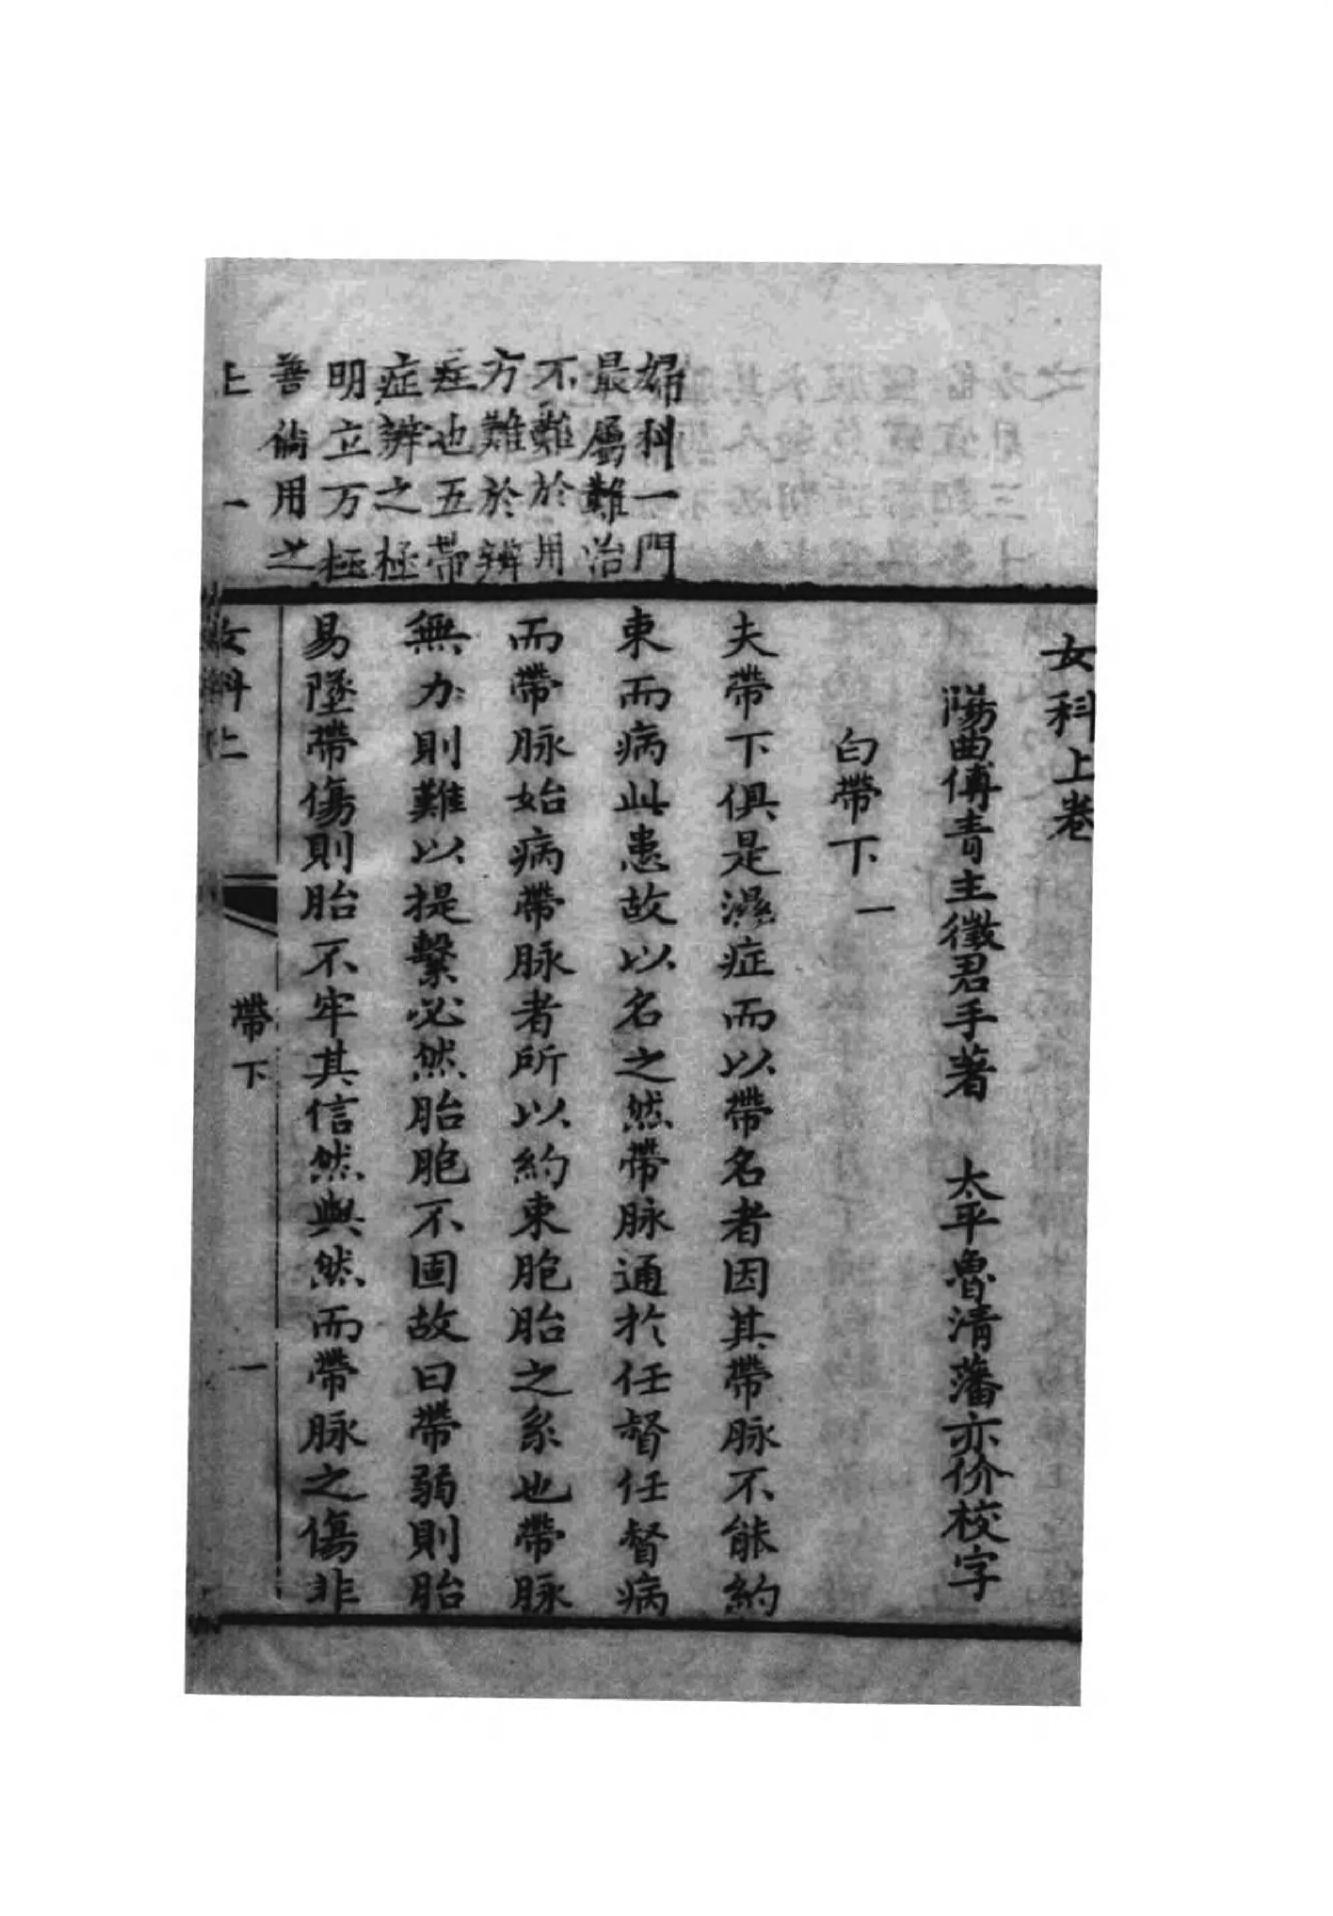 女科上卷
陽曲傅青主徵君手著　太平魯清藩亦价校字
白帶下　一
夫帶下俱是濕症而以帶名者因其帶脉不能約
束而病此患故以名之然帶脉通於任督任督病
而帶脉始病帶脉者所以約束胞胎之系也帶脉
無力則難以提繫必然胎胞不固故曰帶弱則胎
易墜帶傷則胎不牢其信然與然而帶脉之傷非
婦科一門
最屬難治
不難於用
方難於辨
症也五帶
症辨之極
明立方極
善倘用之
上　一
女科上　帶下　一